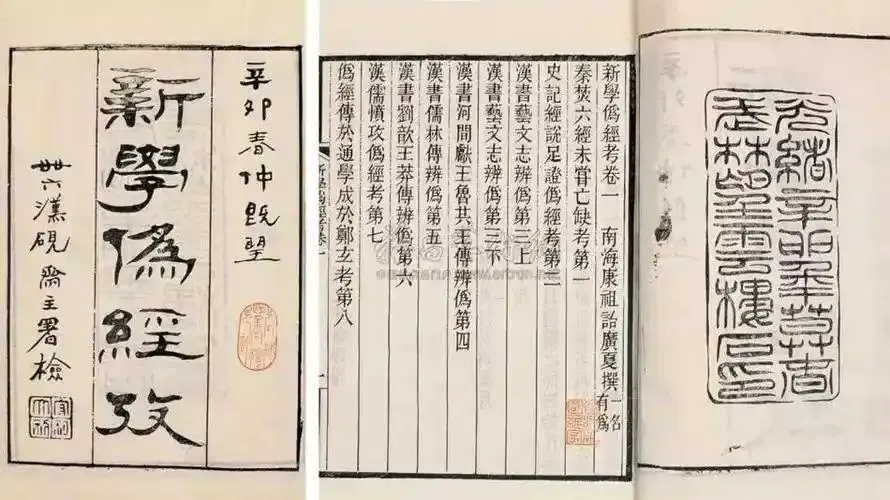 辛卯春仲既望
新學僞經攷
六漢硯齋主署檢
新學僞經考卷一 南海康祖詒廣夏撰 一名有爲
秦焚六經未嘗亡缺考第一
史記經說足證僞經考第二
漢書藝文志辨僞第三上
漢書藝文志辨僞第三下
漢書河間獻王魯共王傳辨僞第四
漢書儒林傳辨僞第五
漢書劉歆王莽傳辨僞第六
漢儒憤攻僞經考第七
僞經傳於通學成於鄭玄考第八
光緒辛卯
武林望雲樓石印